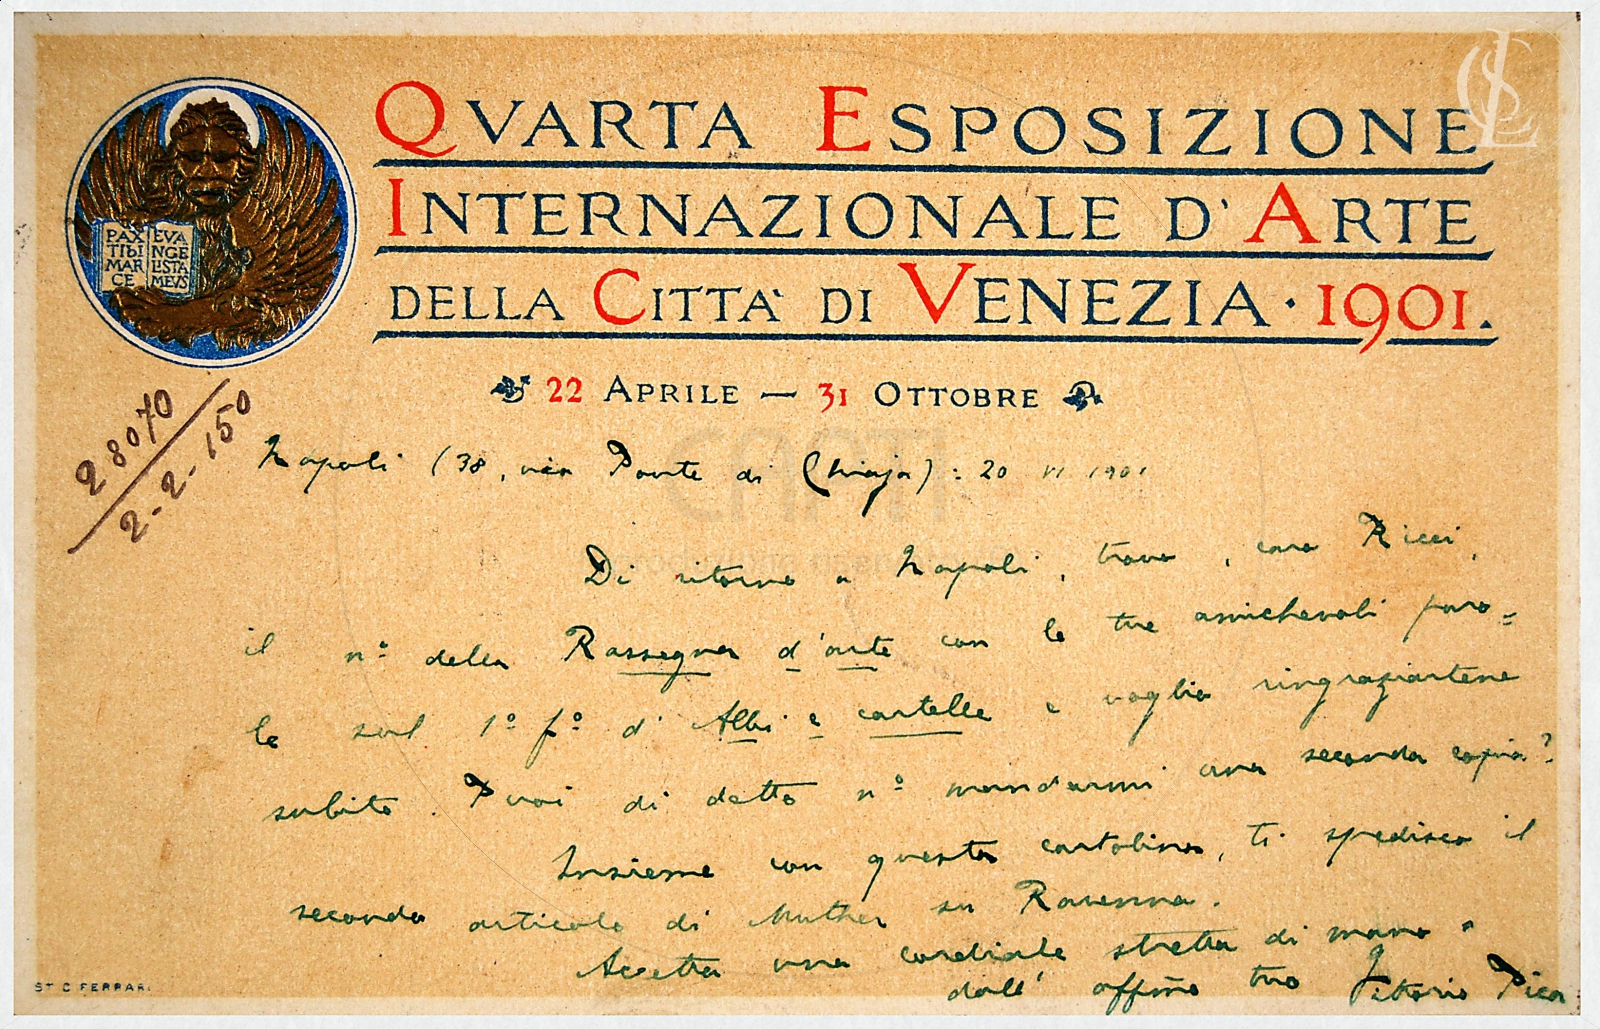 QVARTA ESPOSIZIONE
INTERNAZIONALE D'ARTE
DELLA CITTA' DI VENEZIA · 1901.
22 APRILE — 31 OTTOBRE
PAX EVA
TIBI NGE
MAR LISTA
CE MEVS
28070
2-2-150
Napoli (38, via Ponte di Chiaja): 20 VI 1901
Di ritorno a Napoli, trovo, caro Ricci,
il n° della Rassegna d'arte con le tue amichevoli paro=
le sul 1° f° d'Albi e cartelle e voglio ringraziartene
subito. Puoi di detto n° mandarmi una seconda copia?
Insieme con questa cartolina, ti spedisco il
secondo articolo di Muther su Ravenna.
Accetta una cordiale stretta di mano
dall' affmo tuo Vittorio Pica
ST C FERRARI